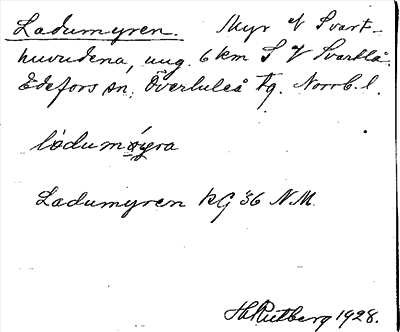 Ladumyren. Myr V Svart-
huvudena, ung. 6 km S V Svartlå.
Edefors sn, Överluleå tg. Norrb. l.
lådumøyra
Ladumyren RG 36 NM.
H. Rutberg 1928.